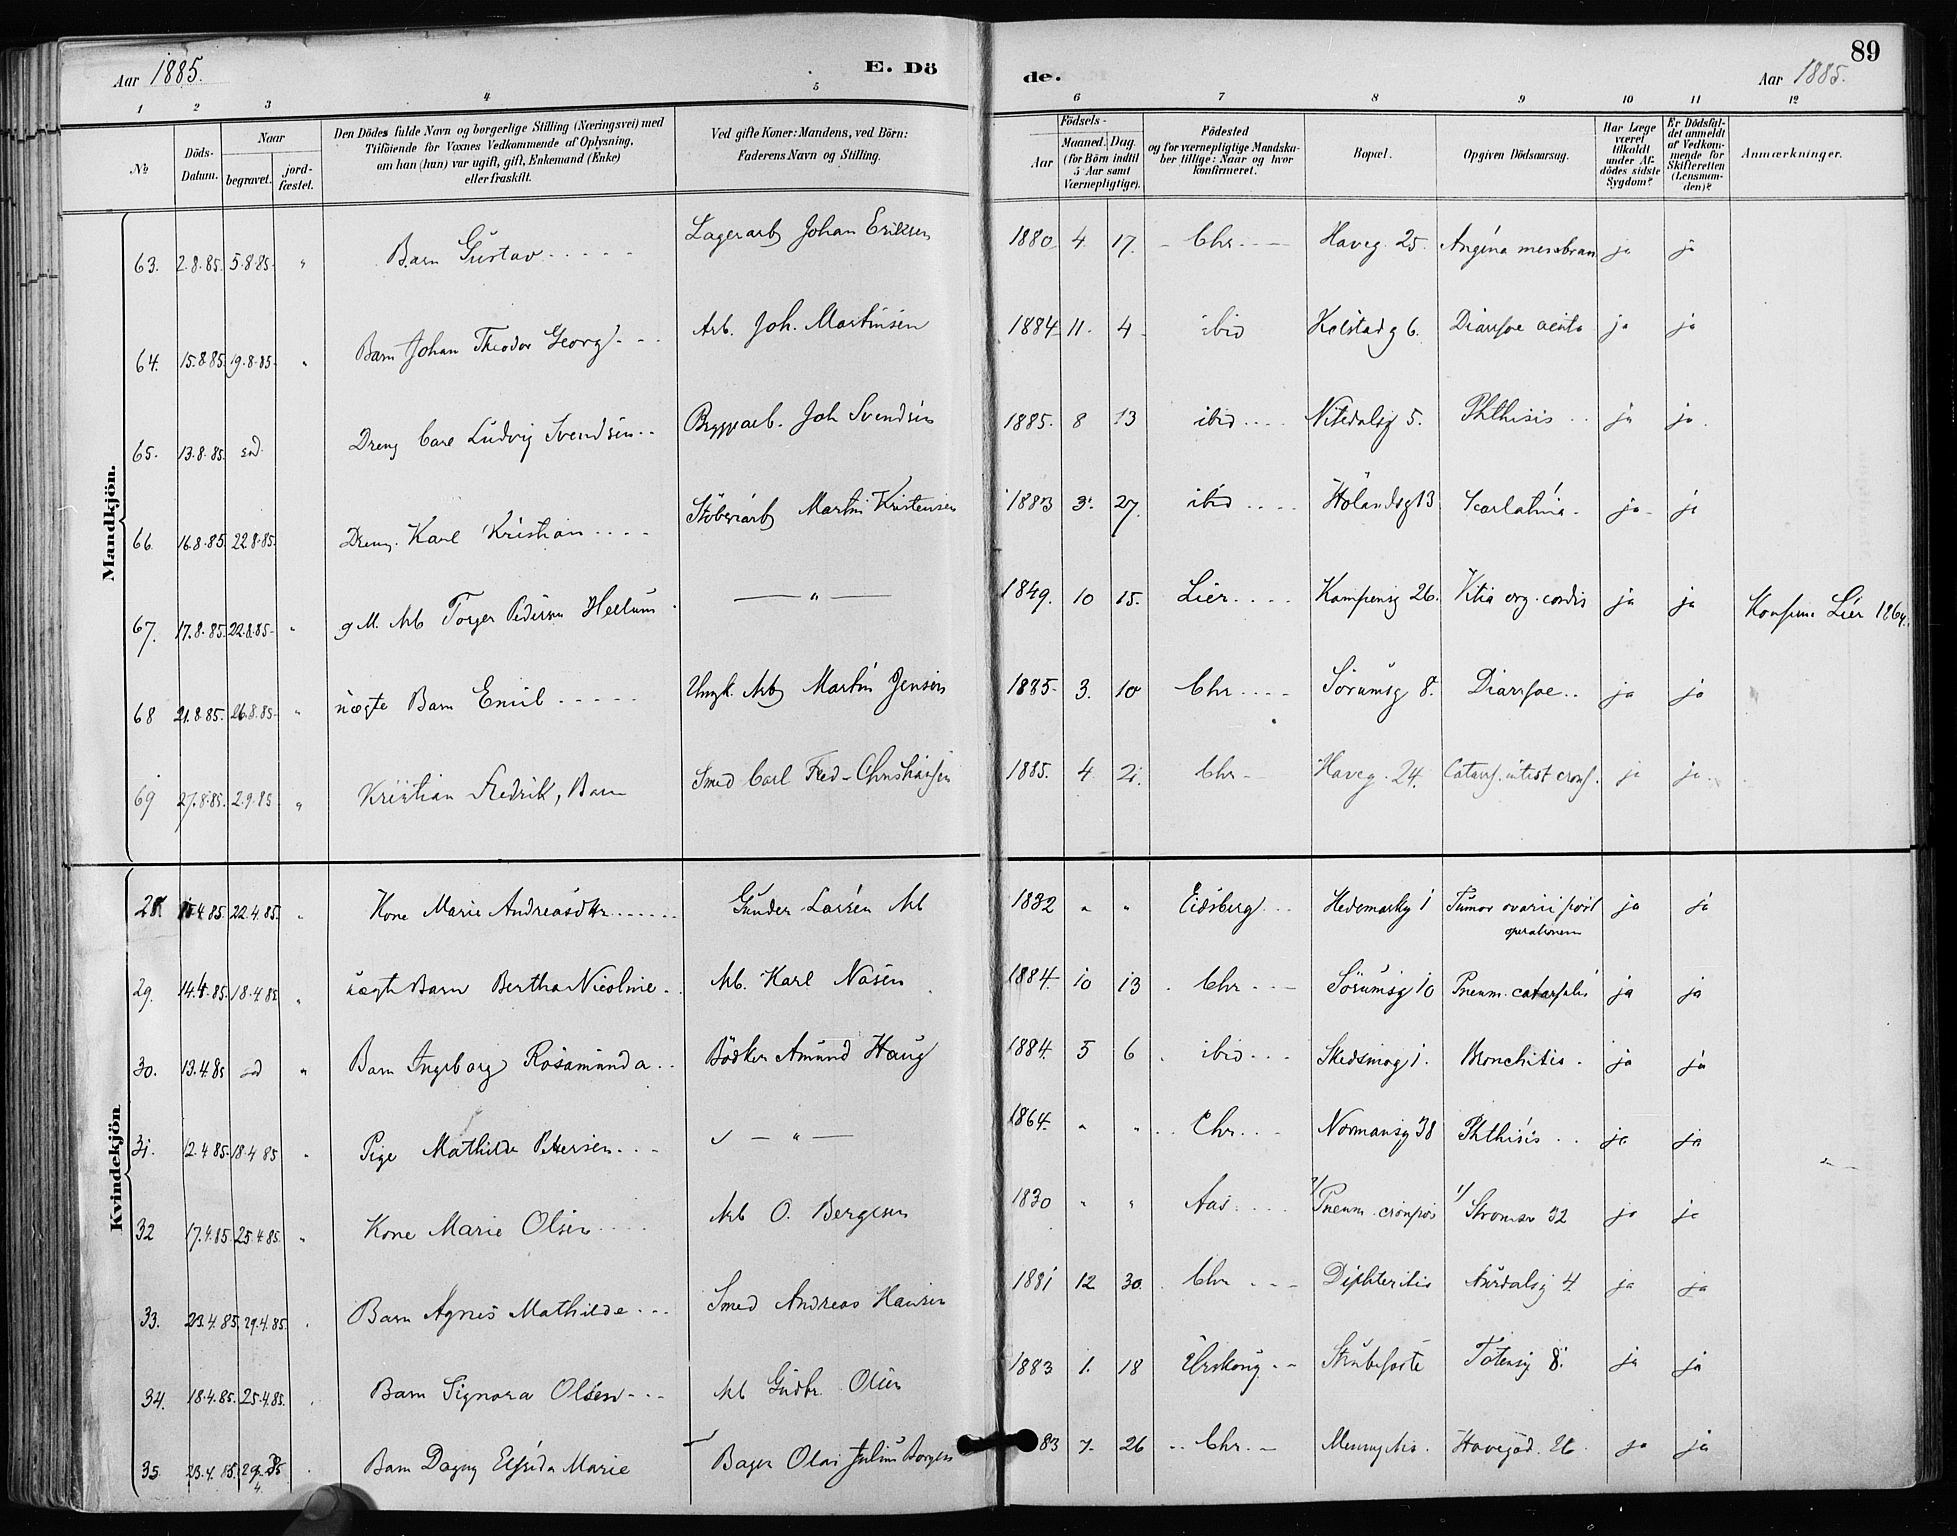 89
Aar 1885.
E. Dö
de.
Aar 1885.
1 2 3 4 5 6 7 8 9 10 11 12
№
Döds-Datum.
Naar
begravet.
jord-fæstet.
Den Dödes fulde Navn og borgerlige Stilling (Næringsvei) med
Tilföiende for Voxnes Vedkommende af Oplysning,
om han (hun) var ugift, gift, Enkemand (Enke)
eller fraskilt.
Ved gifte Koner: Mandens, ved Börn:
Faderens Navn og Stilling.
Födsels-
Aar
Maaned. Dag.
(for Börn indtil
5 Aar samt
Værnepligtige).
Födested
og for værnepligtige Mandska-
ber tillige: Naar og hvor
konfirmeret.
Bopæl.
Opgiven Dödsaarsag.
Har Læge
været
tilkaldt
under Af-
dödes sidste
Sygdom?
Er Dödsfal-
det anmeldt
af Vedkom-
mende for
Skifteretten
(Lensman-
den)?
Anmærkninger.
Mandkjön.
63. 2.8.85. 5.8.85. " Barn Gustav Lagerarb Johan Eriksen 1880 4 17. Chr. Haveg. 25. Angina membran ja ja
64. 15.8.85. 19.8.85. " Barn Johan Theodor Georg Arb. Joh. Martinsen 1884 11. 4 ibid Kolstadg 6. Diarrhoe acuta ja ja
65. 13.8.85. ead. Dreng Carl Ludvig Svendsen Bryggearb. Joh Svendsen 1885. 8 13 ibid Nitedalsg 5. Phthisis ja ja.
66. 16.8.85. 22.8.85. Dreng Karl Kristian Martin Kristensen 1883 3. 27. ibid Hölandsg 13 Scarlatina ja ja
67. 17.8.85. 22.8.85. " g M. Arb Torger Pedersen Hellum — " — 1849. 10 15. Lier Kampensg 26. Vitia org. cordis ja ja Konfirm Lier 1864.
68 21.8.85. 26.8.85. " uægte Barn Emil Ungk. Arb Martin Jensen 1885. 3. 10 Chr. Sörumsg 8. Diarrhoe ja ja
69 27.8.85. 2.9.85 " Kristian Fredrik, Barn Smed Carl Fred. Christiansen 1885. 4 21. Chr Haveg. 24. Catarrh. intest cronh. ja ja.
Kvindekjön
28 15.4.85. 22.4.85. " Kone Marie Andreasdtr Gunder Larsen Arb 1832 " " Eidsberg Hedemarksg 1 Tumor ovarii post operationem ja ja
29. 14.4.85. 18.4.85 " uægte Barn Bertha Nicoline Arb. Karl Nasen 1884 10 13 Chr. Sörumsg 10 Pneum. catarrhalis ja ja
30. 13.4.85 ead " Barn Ingeborg Rosamunda Bödker Amund Haug 1884. 5 6 ibid Skedsmog 1. Bronchitis ja ja
31. 12.4.85. 18.4.85 " Pige Mathilde Petersen — " — 1864. " " Chr. Normansg 38 Phthisis ja ja
32 17.4.85. 25.4.85. " Kone Marie Olsen Arb O. Bergesen 1830 " " Aas 2/ Pneum. croupos 1/ Stromsv 32 ja ja
33. 23.4.85. 29.4.85. Barn Agnes Mathilde Smed Andreas Hansen 1881 12 30. Chr Diphteritis Nurdalsg 4. ja ja
34. 18.4.85. 25.4.85. Barn Signora Olsen Arb Gudbr. Olsen 1883 1. 18 Urskoug Strubehoste Totensg 8. ja ja
35. 23.4.85. 29.4.85 Barn Dagny Elfrida Marie Bager Olai Julius Borgen 83 7. 26 Chr. Meningitis. Havegad. 26. ja ja